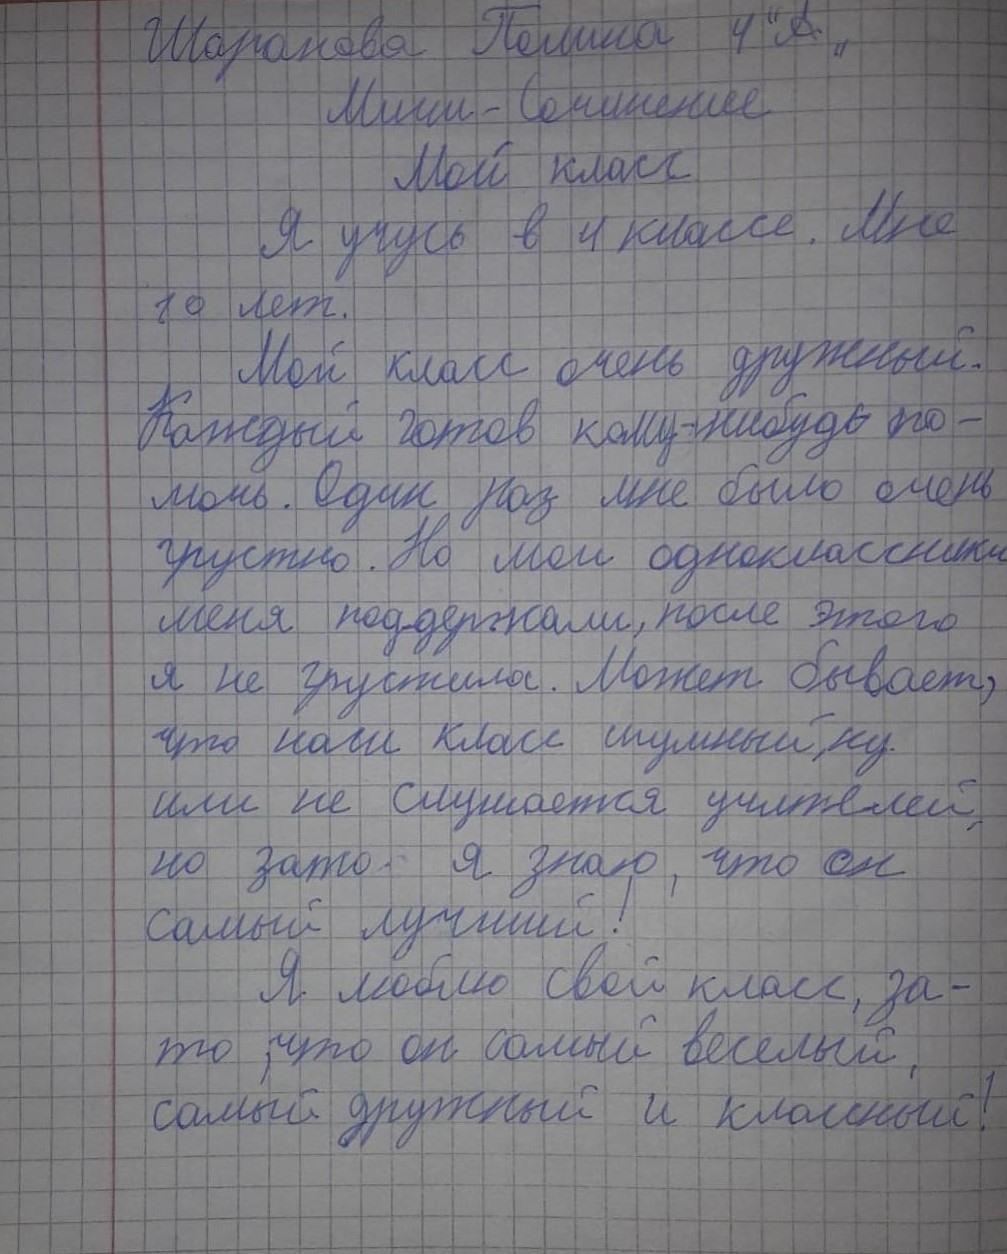 Шарапова Полина 4 "А"
Мини-Сочинение
Мой класс
Я учусь в 4 классе. Мне
10 лет.
Мой класс очень дружный.
Каждый готов кому-нибудь по-
мочь. Один раз мне было очень
грустно. Но мои одноклассники
меня поддержали, после этого
я не грустила. Может бывает,
что наш класс шумный, ну
или не слушается учителей,
но зато я знаю, что он
самый лучший!
Я люблю свой класс, за-
то, что он самый веселый,
самый дружный и классный!